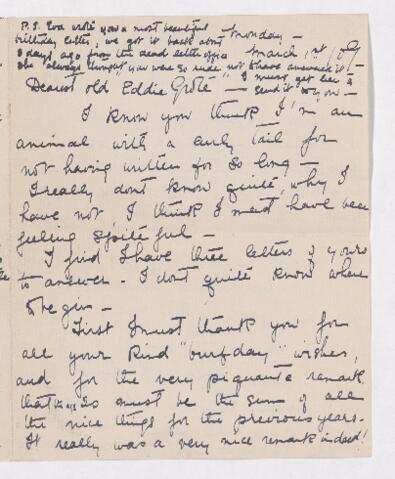 P.S. Eva wrote you a most beautiful
birthday letter, we got it back about
3 days ago from the dead letter office
She "always thought" you were so rude not to have answered it! —
I must get her to
send it to you —
Monday —
March 1st
Dearest old Eddie Grote —
I know you think I'm an
animal with a curly tail for
not having written for so long —
I really don't know quite, why I
have not, I think I must have been
feeling spiteful —
I find I have three letters of yours
to answer — I don't quite know where
to begin —
First I must thank you for
all your kind "burfday" wishes,
and for the very piquante remark
that the age 20 must be the sum of all
the nice things for the previous years —
It really was a very nice remark indeed!